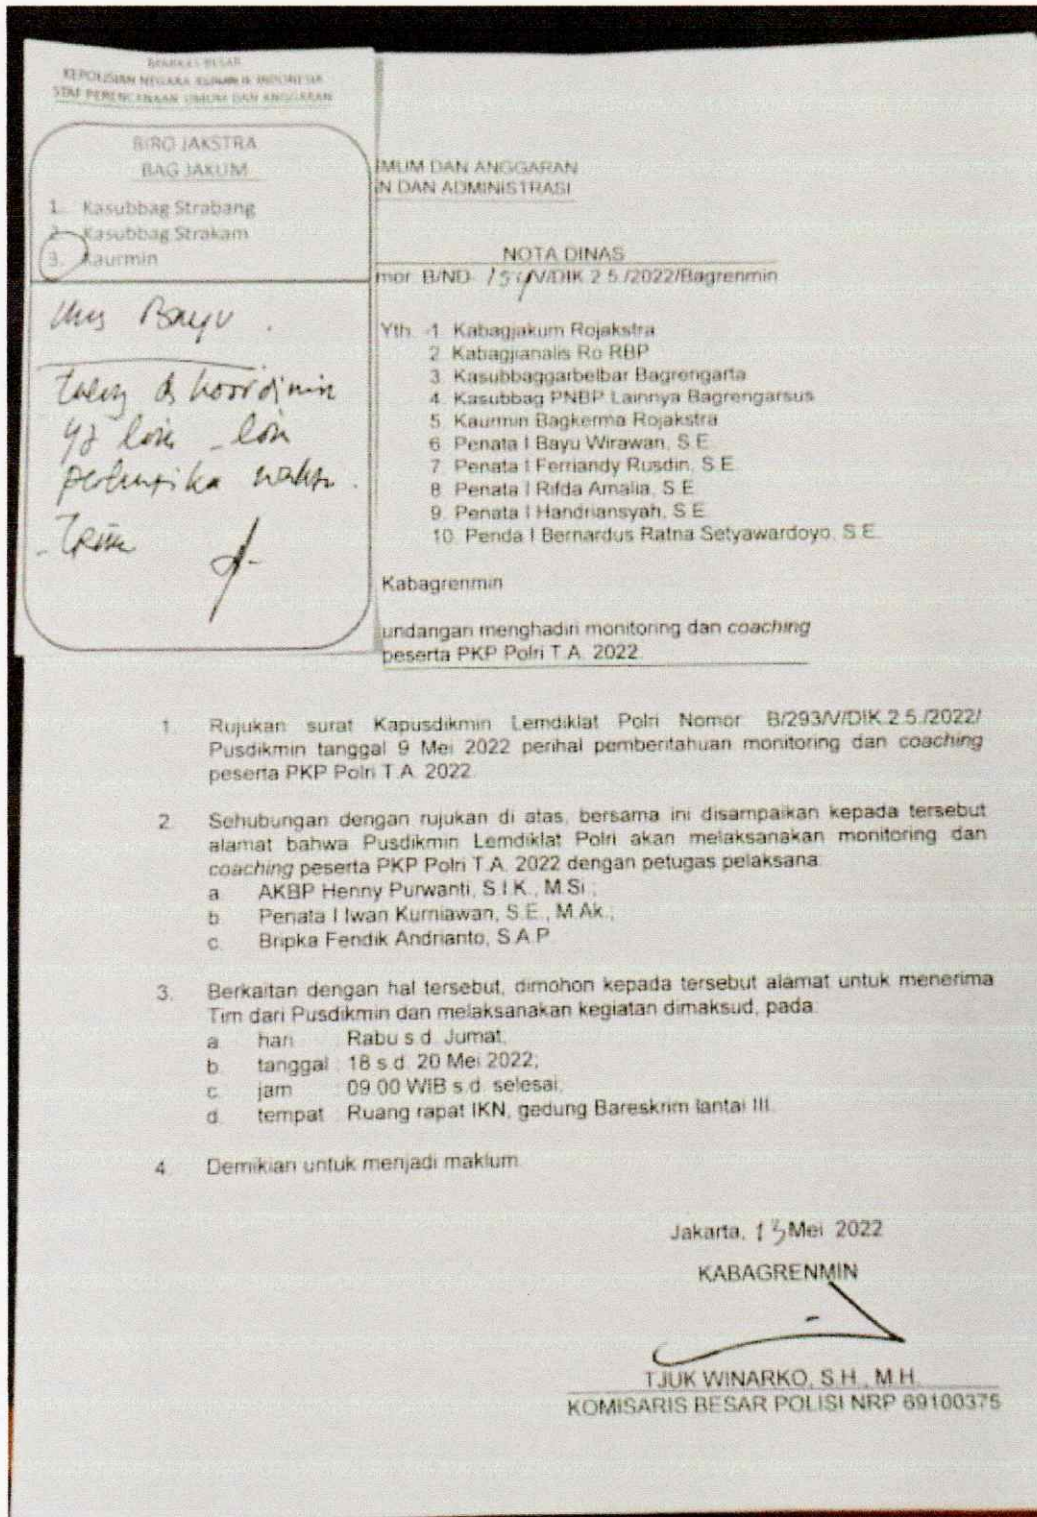 MARKAS BESAR
KEPOLISIAN NEGARA REPUBLIK INDONESIA
STAF PERENCANAAN UMUM DAN ANGGARAN
BIRO JAKSTRA
BAG JAKUM
1. Kasubbag Strabang
2. Kasubbag Strakam
3. Kaurmin
Mas Bayu.
MUM DAN ANGGARAN
N DAN ADMINISTRASI
NOTA DINAS
mor B/ND- /V/DIK.2.5./2022/Bagrenmin
Yth. 1. Kabagjakum Rojakstra
2. Kabagjianalis Ro RBP
3. Kasubbaggarbelbar Bagrengarta
4. Kasubbag PNBP Lainnya Bagrengarsus
5. Kaurmin Bagkerma Rojakstra
6. Penata I Bayu Wirawan, S.E.
7. Penata I Ferriandy Rusdin, S.E.
8. Penata I Rifda Amalia, S.E.
9. Penata I Handriansyah, S.E.
10. Penda I Bernardus Ratna Setyawardoyo, S.E.
Kabagrenmin
undangan menghadiri monitoring dan coaching
peserta PKP Polri T.A. 2022.
1. Rujukan surat Kapusdikmin Lemdiklat Polri Nomor: B/293/V/DIK.2.5./2022/
Pusdikmin tanggal 9 Mei 2022 perihal pemberitahuan monitoring dan coaching
peserta PKP Polri T.A. 2022.
2. Sehubungan dengan rujukan di atas, bersama ini disampaikan kepada tersebut
alamat bahwa Pusdikmin Lemdiklat Polri akan melaksanakan monitoring dan
coaching peserta PKP Polri T.A. 2022 dengan petugas pelaksana:
a. AKBP Henny Purwanti, S.I.K., M.Si.;
b. Penata I Iwan Kurniawan, S.E., M.Ak.;
c. Bripka Fendik Andrianto, S.A.P.
3. Berkaitan dengan hal tersebut, dimohon kepada tersebut alamat untuk menerima
Tim dari Pusdikmin dan melaksanakan kegiatan dimaksud, pada:
a. hari : Rabu s.d. Jumat;
b. tanggal : 18 s.d. 20 Mei 2022;
c. jam : 09.00 WIB s.d. selesai;
d. tempat : Ruang rapat IKN, gedung Bareskrim lantai III.
4. Demikian untuk menjadi maklum.
Jakarta, 13 Mei 2022
KABAGRENMIN
TJUK WINARKO, S.H., M.H.
KOMISARIS BESAR POLISI NRP 69100375